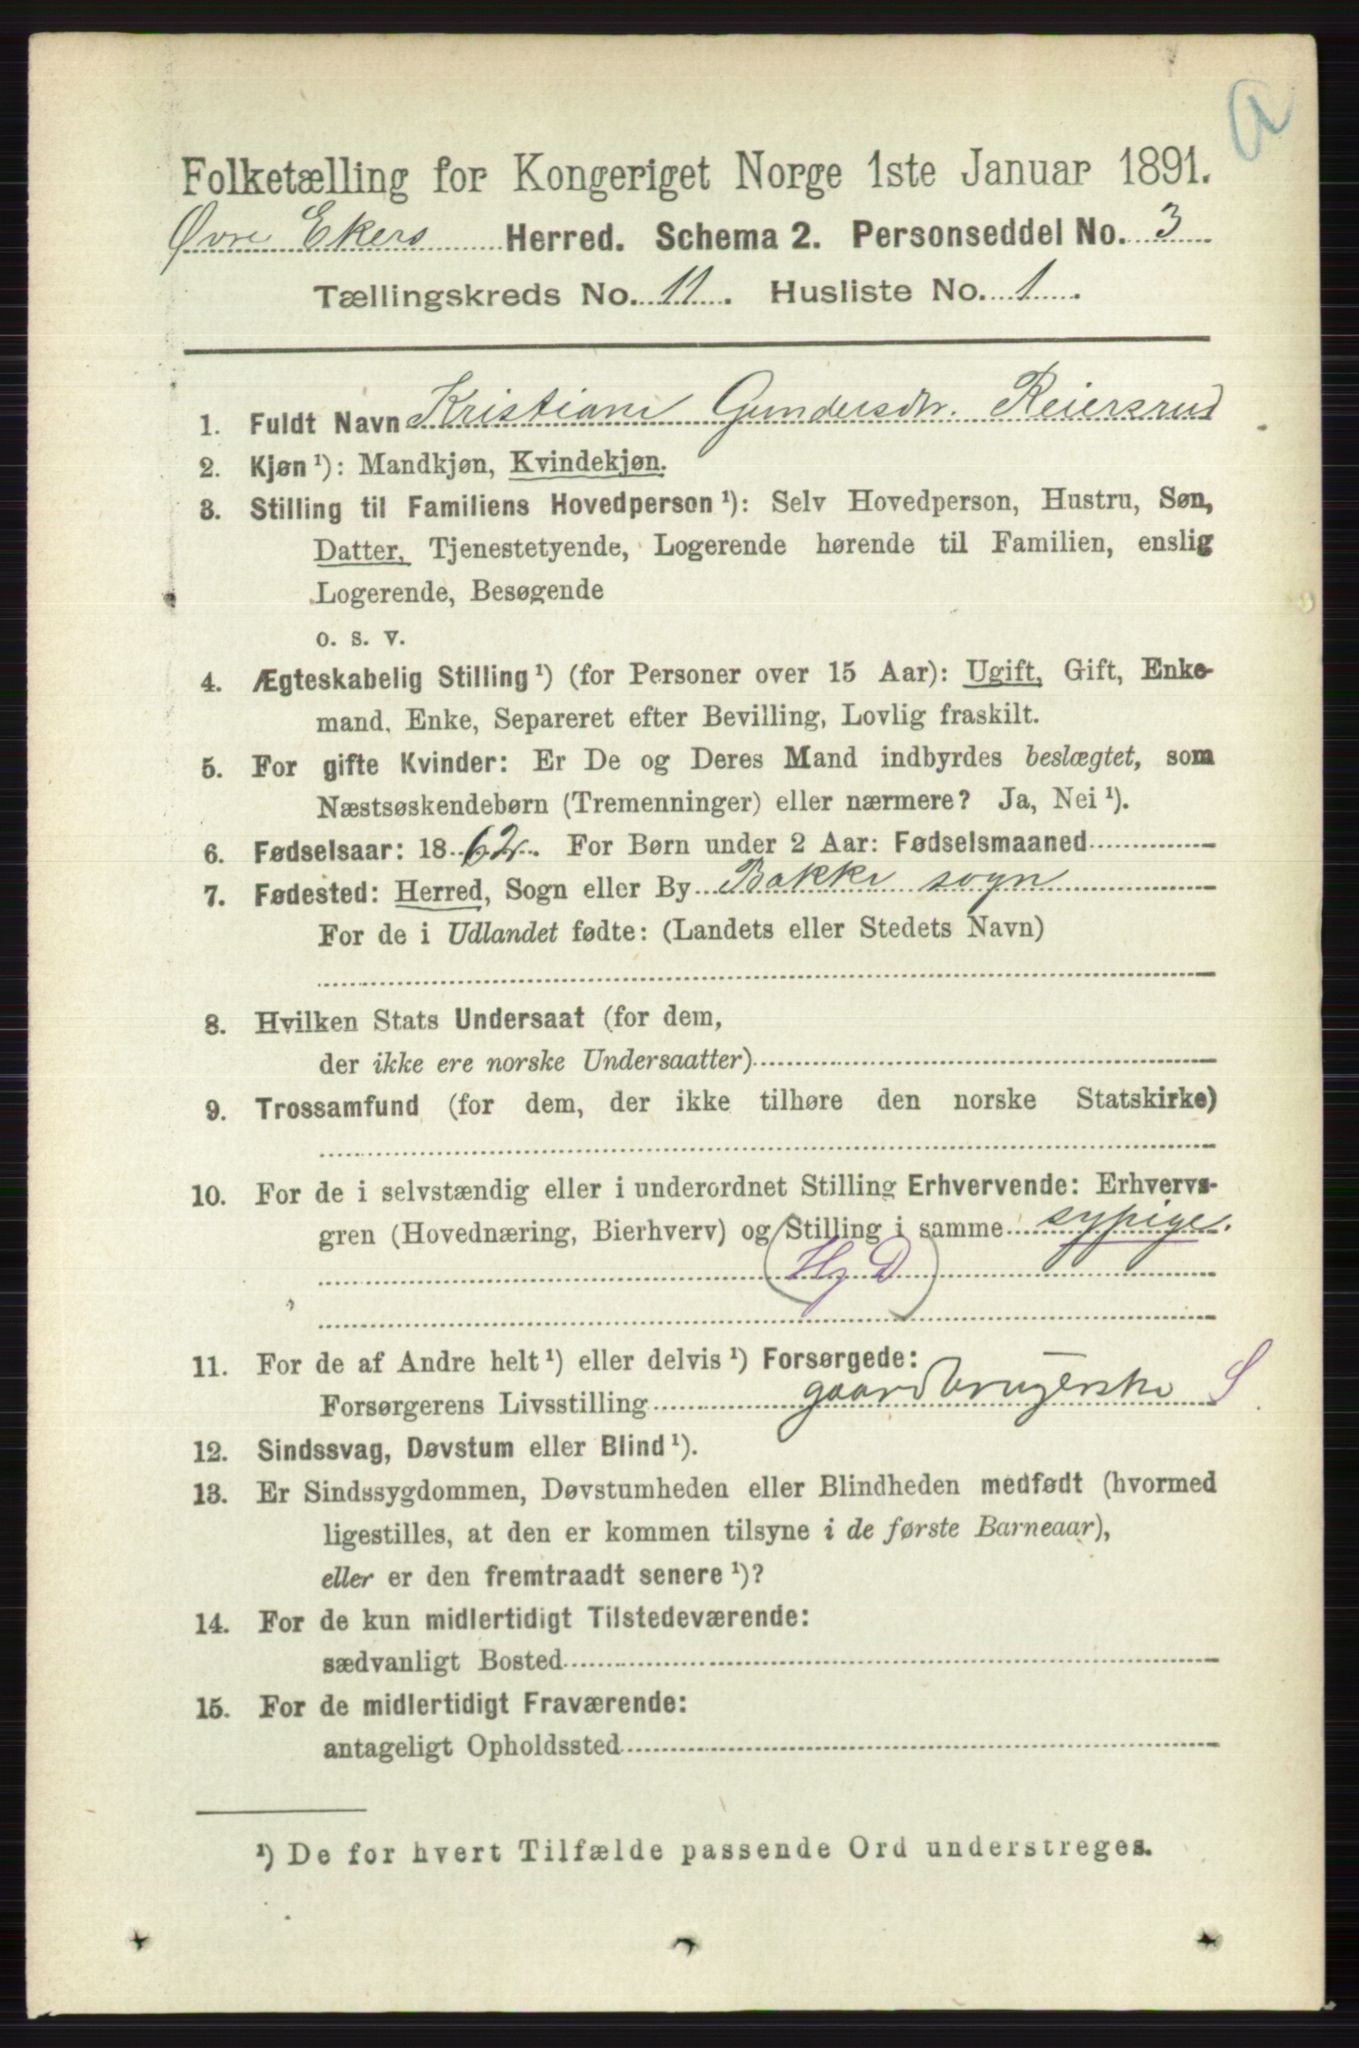 a
Folketælling for Kongeriget Norge 1ste Januar 1891.
Øvre Ekers Herred. Schema 2. Personseddel No. 3
Tællingskreds No. 11. Husliste No. 1.
1. Fuldt Navn Kristiane Gundersdtr. Reiersrud
2. Kjøn ¹): Mandkjøn, Kvindekjøn.
3. Stilling til Familiens Hovedperson ¹): Selv Hovedperson, Hustru, Søn,
Datter, Tjenestetyende, Logerende hørende til Familien, enslig
Logerende, Besøgende
o. s. v.
4. Ægteskabelig Stilling ¹) (for Personer over 15 Aar): Ugift, Gift, Enke-
mand, Enke, Separeret efter Bevilling, Lovlig fraskilt.
5. For gifte Kvinder: Er De og Deres Mand indbyrdes beslægtet, som
Næstsøskendebørn (Tremenninger) eller nærmere? Ja, Nei ¹).
6. Fødselsaar: 1862. For Børn under 2 Aar: Fødselsmaaned
7. Fødested: Herred, Sogn eller By Bakke sogn
For de i Udlandet fødte: (Landets eller Stedets Navn)
8. Hvilken Stats Undersaat (for dem,
der ikke ere norske Undersaatter)
9. Trossamfund (for dem, der ikke tilhøre den norske Statskirke)
10. For de i selvstændig eller i underordnet Stilling Erhvervende: Erhvervs-
gren (Hovednæring, Bierhverv) og Stilling i samme sypige.
(Hj D)
11. For de af Andre helt ¹) eller delvis ¹) Forsørgede:
Forsørgerens Livsstilling gaardbrugerske S
12. Sindssvag, Døvstum eller Blind ¹).
13. Er Sindssygdommen, Døvstumheden eller Blindheden medfødt (hvormed
ligestilles, at den er kommen tilsyne i de første Barneaar),
eller er den fremtraadt senere ¹)?
14. For de kun midlertidigt Tilstedeværende:
sædvanligt Bosted
15. For de midlertidigt Fraværende:
antageligt Opholdssted
¹) De for hvert Tilfælde passende Ord understreges.